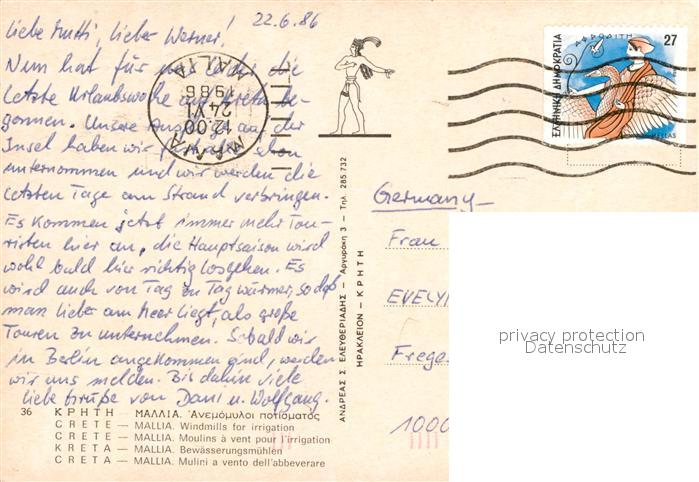 22.6.86
Liebe Mutti, lieber Werner!
Nun hat für uns leider die
letzte Urlaubswoche auf Kreta be-
gonnen. Unsere Ausflüge auf der
Insel haben wir schon
unternommen und wir werden die
letzten Tage am Strand verbringen.
Es kommen jetzt immer mehr Tou-
risten hier an, die Hauptsaison wird
wohl bald hier richtig losgehen. Es
wird auch von Tag zu Tag wärmer, so daß
man lieber am Meer liegt, als große
Touren zu unternehmen. Sobald wir
in Berlin angekommen sind, werden
wir uns melden. Bis dahin viele
liebe Grüße von Dani u. Wolfgang.
36 ΚΡΗΤΗ — ΜΑΛΛΙΑ. Ἀνεμόμυλοι ποτίσματος
CRETE — MALLIA. Windmills for irrigation
CRETE — MALLIA. Moulins à vent pour l'irrigation
KRETA — MALLIA. Bewässerungsmühlen
CRETA — MALLIA. Mulini a vento dell'abbeverare
ΜΑΛΙΑ
12.00
24 VI
1986
MALIA
ΑΝΔΡΕΑΣ Σ. ΕΛΕΥΘΕΡΙΑΔΗΣ — Αργυράκη 3 — Τηλ. 285.732
ΗΡΑΚΛΕΙΟΝ — ΚΡΗΤΗ
ΑΦΡΟΔΙΤΗ
27
ΕΛΛΗΝΙΚΗ ΔΗΜΟΚΡΑΤΙΑ
HELLAS
Germany
Frau
EVELY
Freges
1000
privacy protection
Datenschutz